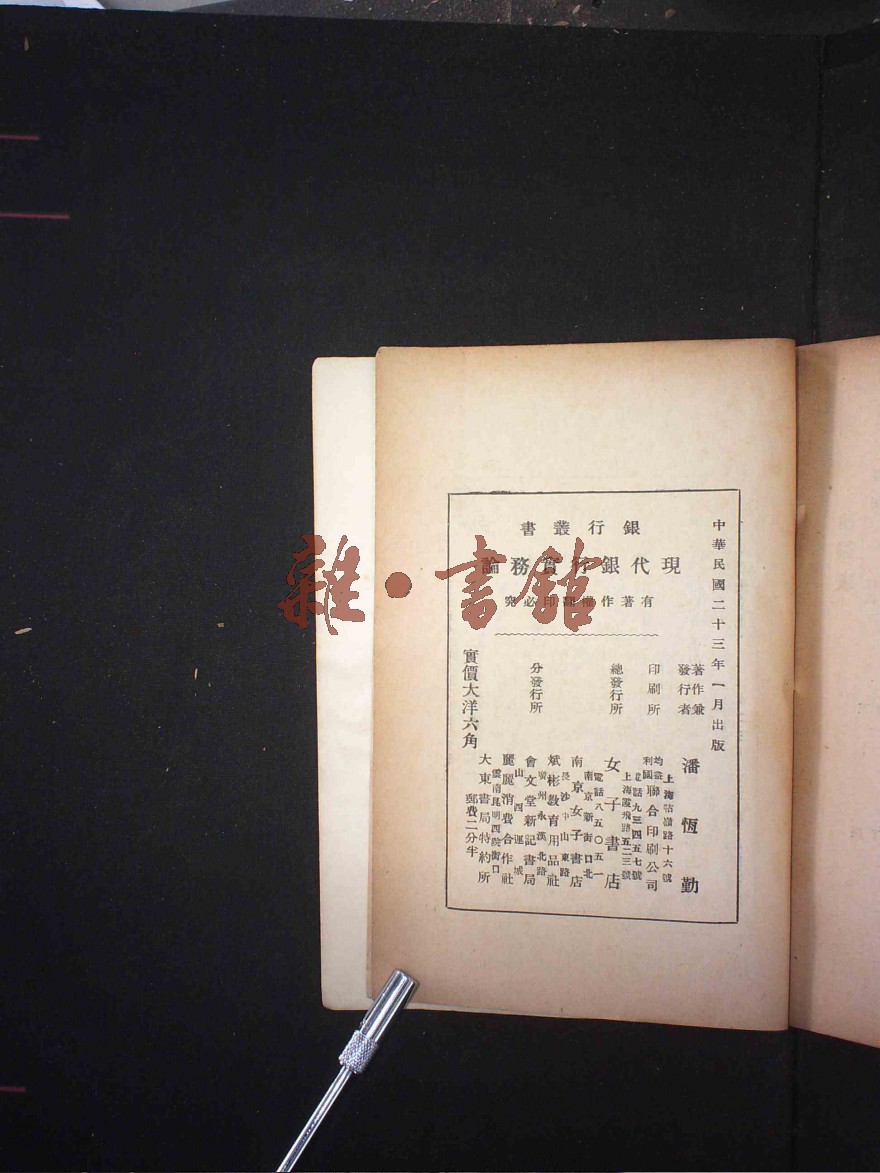 中華民國二十三年一月出版
銀行叢書
現代銀行實務論
有著作權翻印必究
著作兼
發行者
潘恆勤
印刷所
上海牯嶺路十六號
均益
利國
聯合印刷公司
電話九三四五七號
總發行所
上海霞飛路五二三號
女子書店
電話八五〇五一
分發行所
南京新街口北
南京女子書店
長沙中山東路
斌彬教育用品社
廣州永漢北路
會文堂新記書局
山西運城
麗麗消費合作社
雲南昆明西院街口
大東書局特約所
實價大洋六角
郵費二分半
雜·書館